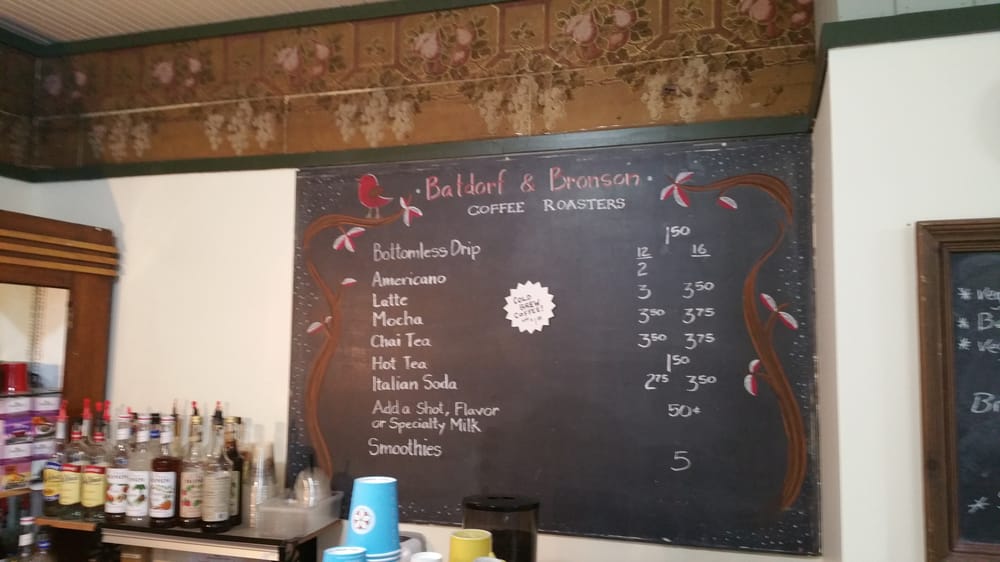 Baldorf & Bronson
COFFEE ROASTERS
Bottomless Drip 1 50
12 16
Americano 2
Latte 3 3 50
Mocha 3 50 3 75
Chai Tea 3 50 3 75
Hot Tea 1 50
Italian Soda 2 75 3 50
Add a Shot, Flavor
or Specialty Milk 50¢
Smoothies 5
COLD
BREW
COFFEE!